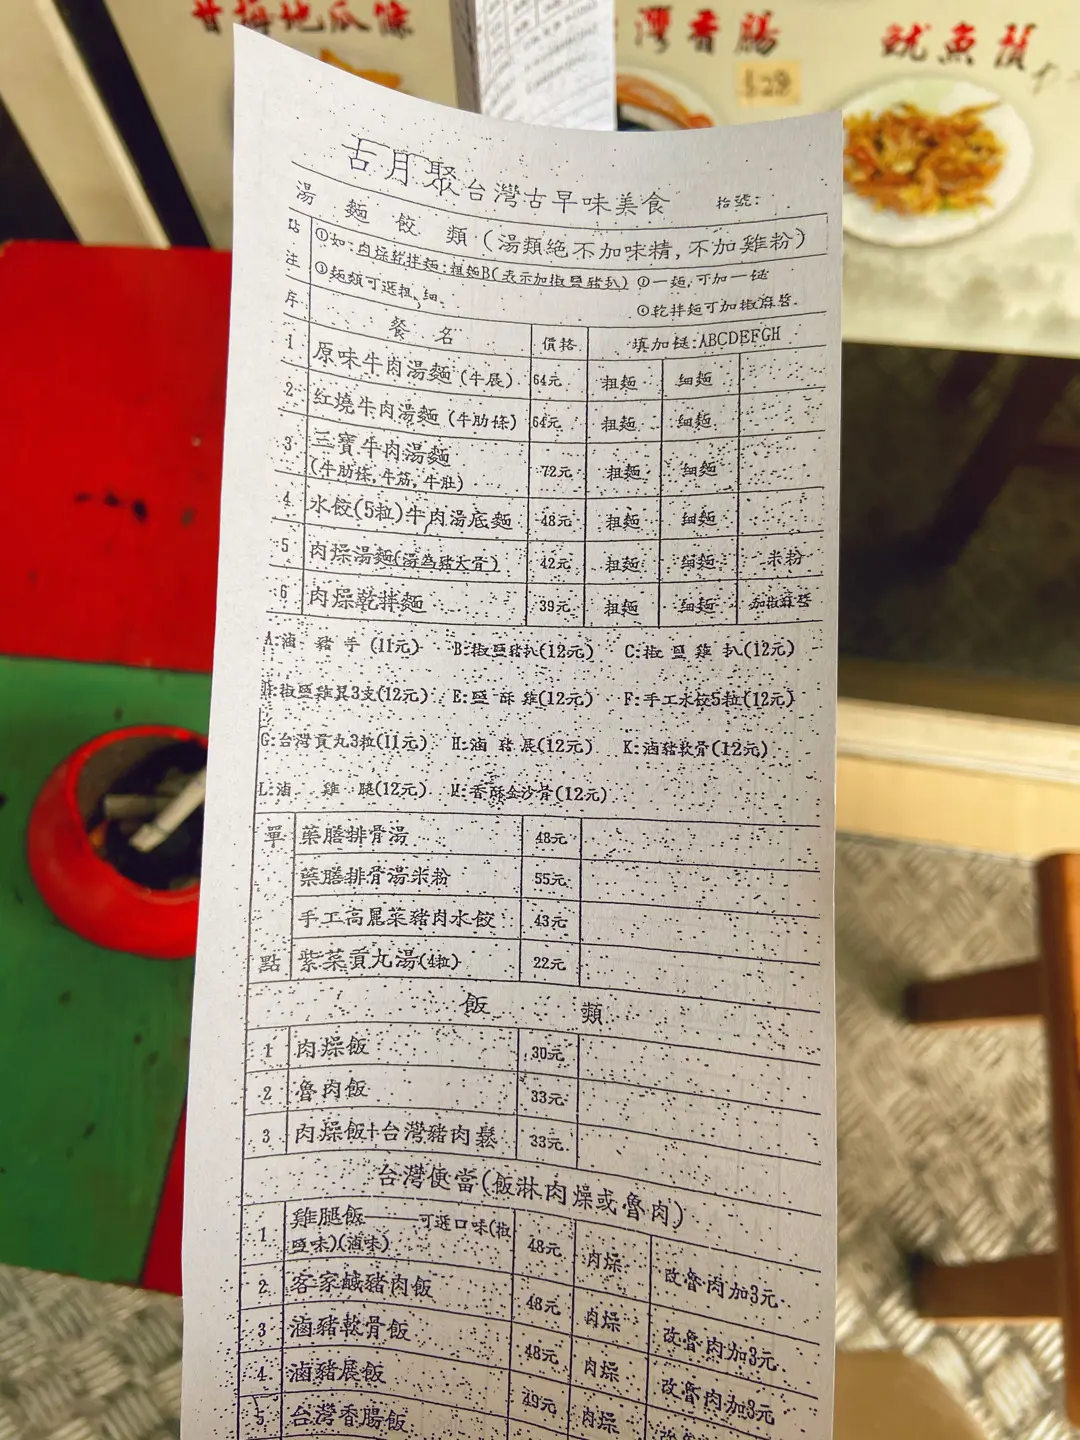 甘梅地瓜條
灣香腸
$28
魷魚鬚
古月聚台灣古早味美食 抬號:
湯麵餃類(湯類絕不加味精,不加雞粉)
貼注 ①如:肉燥乾拌麵:粗麵B(表示加椒鹽豬扒) ②一麵,可加一餸
③麵類可選粗,細. ④乾拌麵可加椒麻醬.
序 餐名 價格 填加餸:ABCDEFGH
1 原味牛肉湯麵(牛展) 64元 粗麵 细麵
2 紅燒牛肉湯麵(牛肋條) 64元 粗麵 细麵
3 三寶牛肉湯麵 72元 粗麵 细麵
(牛肋條,牛筋,牛肚)
4 水餃(5粒)牛肉湯底麵 48元 粗麵 细麵
5 肉燥湯麵(湯為豬大骨) 42元 粗麵 细麵 米粉
6 肉燥乾拌麵 39元 粗麵 细麵 加椒麻醬
A:滷豬手(11元) B:椒鹽豬扒(12元) C:椒鹽雞扒(12元)
椒鹽雞翼3支(12元) E:鹽酥雞(12元) F:手工水饺5粒(12元)
G:台灣貢丸3粒(11元) H:滷豬展(12元) K:滷豬軟骨(12元)
L:滷雞腿(12元) M:香酥金沙骨(12元)
單 藥膳排骨湯 48元
藥膳排骨湯米粉 55元
手工高麗菜豬肉水餃 43元
點 紫菜貢丸湯(4粒) 22元
飯類
1 肉燥飯 30元
2 魯肉飯 33元
3 肉燥飯+台灣豬肉鬆 33元
台灣便當(飯淋肉燥或魯肉)
1 雞腿飯——可選口味(椒鹽味)(滷味) 48元 肉燥 改魯肉加3元
2 客家鹹豬肉飯 48元 肉燥 改魯肉加3元
3 滷豬軟骨飯 48元 肉燥 改魯肉加3元
4 滷豬展飯 49元 肉燥
5 台灣香腸飯